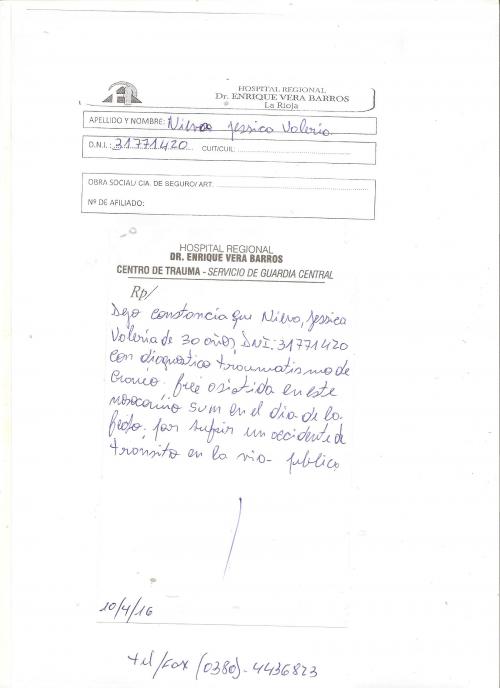 HOSPITAL REGIONAL
Dr. ENRIQUE VERA BARROS
La Rioja
APELLIDO Y NOMBRE: Nieva Jessica Valeria
D.N.I.: 31771420 CUIT/CUIL:
OBRA SOCIAL/ CIA. DE SEGURO/ ART.
Nº DE AFILIADO:
HOSPITAL REGIONAL
DR. ENRIQUE VERA BARROS
CENTRO DE TRAUMA - SERVICIO DE GUARDIA CENTRAL
Rp/
Dejo constancia que Nieva, Jessica
Valeria de 30 años, DNI: 31771420
con diagnostico traumatismo de
Craneo. fue asistida en este
nosocomio en el dia de la
fecha, por sufrir un accidente de
transito en la via publica
10/4/16
tel/fax (0380)-4436823